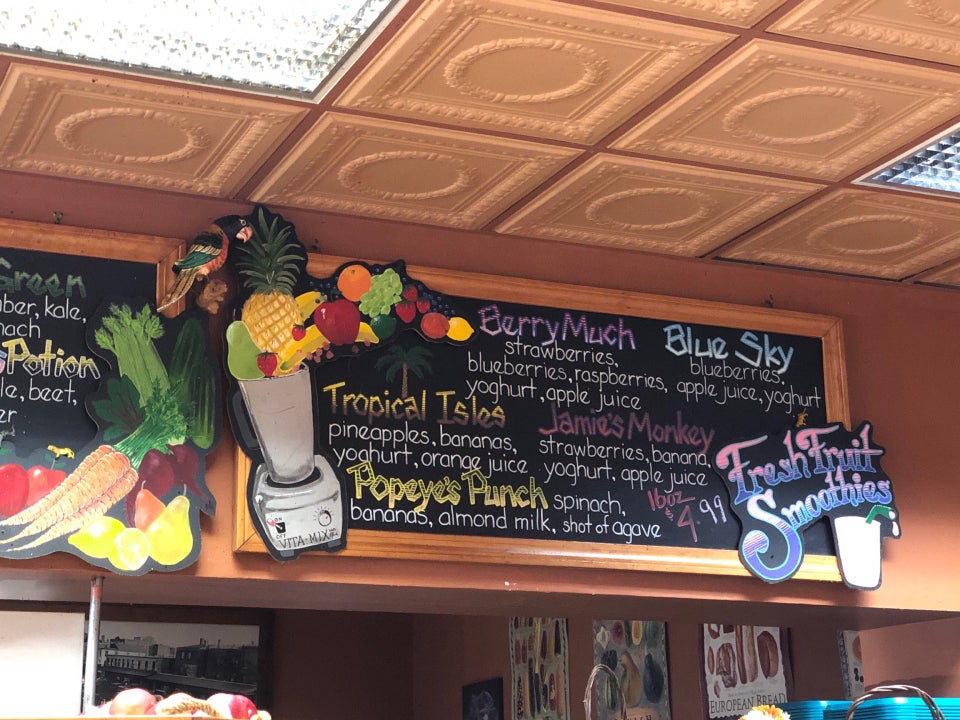 Green
ber, kale,
nach
Potion
le, beet,
er
Berry Much
strawberries,
blueberries, raspberries,
yoghurt, apple juice
Blue Sky
blueberries,
apple juice, yoghurt
Tropical Isles
pineapples, bananas,
yoghurt, orange juice
Jamie's Monkey
strawberries, banana,
yoghurt, apple juice
Popeye's Punch spinach,
bananas, almond milk, shot of agave
16oz
$4.99
Fresh Fruit
Smoothies
VITA-MIX
EUROPEAN BREAD